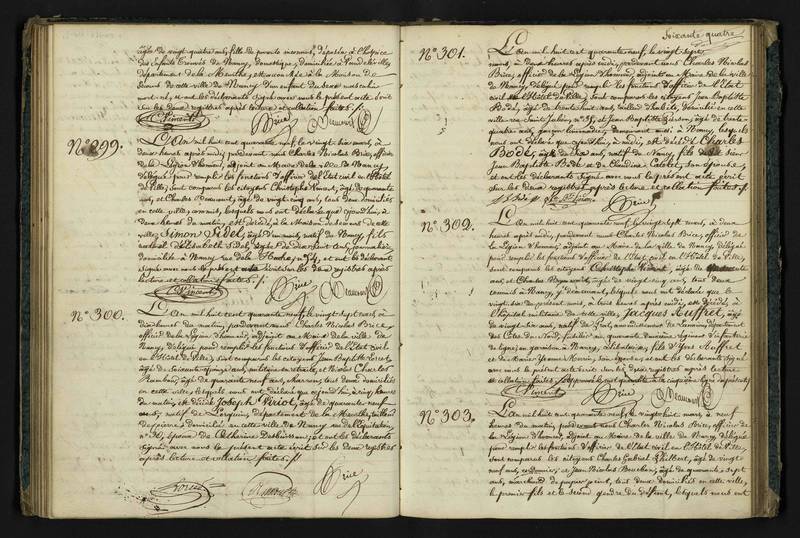 âgée de vingt quatre ans, fille de parents inconnus, déposée à l'hospice
des Enfants Trouvés de Nancy, domestique, domiciliée à
département de la Meurthe, et accouchée à la Maison de
Secours de cette ville de Nancy, d'un enfant du sexe masculin
et ont les déclarants signé avec nous le présent acte écrit
sur les deux registres après lecture et collation faites./.
C. Vincent Brice Beaumont
N° 299.
L'an mil huit cent quarante neuf, le vingt six mars, à
deux heures après midi, pardevant nous Charles Nicolas Brice, officier
de la Légion d'honneur, adjoint au Maire de la ville de Nancy,
délégué pour remplir les fonctions d'officier de l'Etat civil en l'Hôtel
de Ville, sont comparus les citoyens Christophe Vincent, âgé de quarante
ans, et Charles Beaumont, âgé de vingt cinq ans, tous deux domiciliés
en cette ville, commis, lesquels nous ont déclaré que aujourd'hui, à
heures du matin, est décédé, à la Maison de Secours de cette
ville, Simon Sibel, âgé d'un mois, natif de Nancy, fils
naturel d'Elisabeth Sibel, âgée de dix huit ans, journalière,
domiciliée à Nancy, rue de la n° 54, et ont les déclarants
signé avec nous le présent acte écrit sur les deux registres après
lecture et collation faites./.
C. Vincent Brice Beaumont
N° 300.
L'an mil huit cent quarante neuf, le vingt sept mars, à
dix heures du matin, pardevant nous Charles Nicolas Brice,
officier de la Légion d'honneur, adjoint au Maire de la ville de
Nancy, délégué pour remplir les fonctions d'officier de l'Etat civil
en l'Hôtel de Ville, sont comparus les citoyens Jean Baptiste
âgé de soixante quinze ans, militaire en retraite, et Nicolas Charles
âgé de quarante neuf ans, tous deux domiciliés
en cette ville, lesquels nous ont déclaré que aujourd'hui, à cinq heures
du matin, est décédé Joseph Viriot, âgé de quarante neuf
ans, natif de département de la Meurthe, tailleur
de pierre, domicilié en cette ville de Nancy, rue de l'Equitation,
n° 36, époux de Catherine et ont les déclarants
signé avec nous le présent acte écrit sur les deux registres
après lecture et collation faites./.
Brice
soixante quatre
N° 301.
L'an mil huit cent quarante neuf, le vingt sept
mars, à deux heures après midi, pardevant nous Charles Nicolas
Brice, officier de la Légion d'honneur, adjoint au Maire de la ville
de Nancy, délégué pour remplir les fonctions d'officier de l'Etat
civil en l'Hôtel de Ville, sont comparus les citoyens Jean Baptiste
Bodé, âgé de trente huit ans, tailleur d'habits, domicilié en cette
ville rue Saint Julien, n° 35, et Jean Baptiste âgé de trente
quatre ans, garçon limonadier, demeurant aussi à Nancy, lesquels
nous ont déclaré que aujourd'hui, à midi, est décédé Charles
Bodé, âgé de natif de Nancy, fils du Sieur
Jean Baptiste Bodé et de Claudine son épouse,
et ont les déclarants signé avec nous le présent acte écrit
sur les deux registres après lecture et collation faites./.
Brice
N° 302.
L'an mil huit cent quarante neuf, le vingt sept mars, à deux
heures après midi, pardevant nous Charles Nicolas Brice, officier de
la Légion d'honneur, adjoint au Maire de la ville de Nancy, délégué
pour remplir les fonctions d'officier de l'Etat civil en l'Hôtel de Ville,
sont comparus les citoyens Christophe Vincent, âgé de quarante
ans, et Charles Beaumont, âgé de vingt cinq ans, tous deux
commis à Nancy, y demeurant, lesquels nous ont déclaré que le
vingt six du présent mois, à trois heures après midi, est décédé, à
l'hôpital militaire de cette ville, Jacques Auffret, âgé
de vingt six ans, natif de arrondissement de Lannion, département
des Côtes du Nord, fusilier au quarante deuxième régiment d'infanterie
de ligne, en garnison à Nancy, célibataire, fils d'Yves Auffret
et de Marie Yvonne et ont les déclarants signé
avec nous le présent acte écrit sur les deux registres après lecture
et collation faites.
C. Vincent Brice Beaumont
N° 303.
L'an mil huit cent quarante neuf, le vingt huit mars, à neuf
heures du matin, pardevant nous Charles Nicolas Brice, officier de
la Légion d'honneur, adjoint au Maire de la ville de Nancy, délégué
pour remplir les fonctions d'officier de l'Etat civil en l'Hôtel de Ville,
sont comparus les citoyens Charles Gabriel Philbert, âgé de vingt
neuf ans, et Jean Nicolas âgé de quarante sept
ans, marchand de papier peint, tous deux domiciliés en cette ville,
le premier fils et le second gendre du défunt, lesquels nous ont